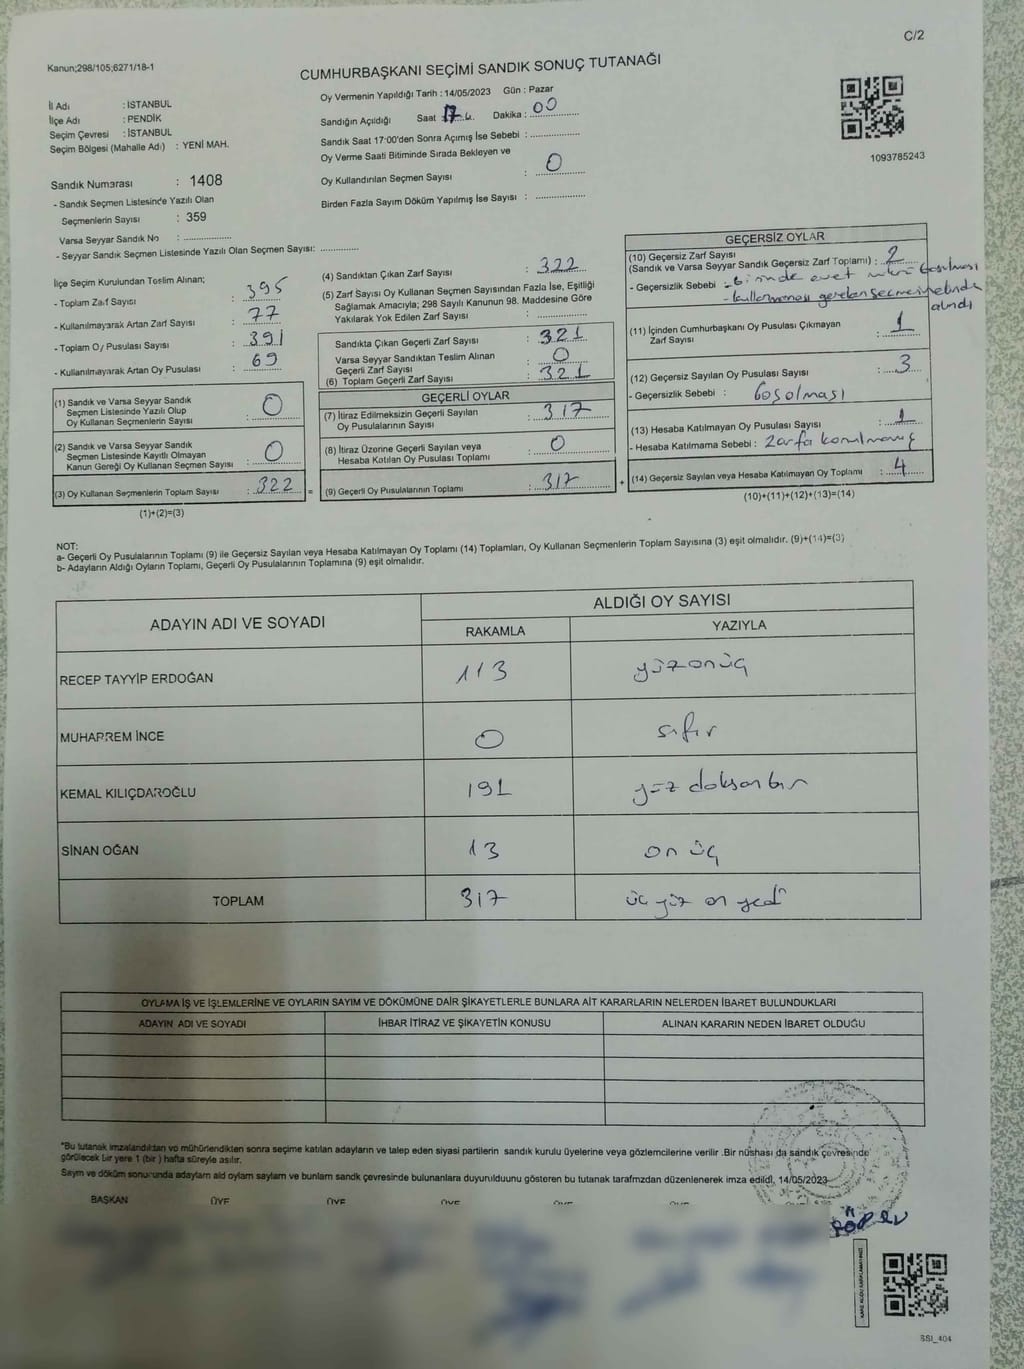 C/2
Kanun;298/105;6271/18-1
CUMHURBAŞKANI SEÇİMİ SANDIK SONUÇ TUTANAĞI
İl Adı : İSTANBUL
İlçe Adı : PENDİK
Seçim Çevresi : İSTANBUL
Seçim Bölgesi (Mahalle Adı) : YENİ MAH.
Oy Vermenin Yapıldığı Tarih : 14/05/2023 Gün : Pazar
Sandığın Açıldığı Saat 17 Dakika : 00
Sandık Saat 17:00'den Sonra Açımış İse Sebebi :
Oy Verme Saati Bitiminde Sırada Bekleyen ve
Oy Kullandırılan Seçmen Sayısı : 0
Birden Fazla Sayım Döküm Yapılmış İse Sayısı :
1093785243
Sandık Numarası : 1408
- Sandık Seçmen Listesinde Yazılı Olan
Seçmenlerin Sayısı : 359
Varsa Seyyar Sandık No :
- Seyyar Sandık Seçmen Listesinde Yazılı Olan Seçmen Sayısı:
İlçe Seçim Kurulundan Teslim Alınan;
- Toplam Zarf Sayısı : 395
- Kullanılmayarak Artan Zarf Sayısı : 77
- Toplam Oy Pusulası Sayısı : 391
- Kullanılmayarak Artan Oy Pusulası : 69
(1) Sandık ve Varsa Seyyar Sandık
Seçmen Listesinde Yazılı Olup
Oy Kullanan Seçmenlerin Sayısı : 0
(2) Sandık ve Varsa Seyyar Sandık
Seçmen Listesinde Kayıtlı Olmayan
Kanun Gereği Oy Kullanan Seçmen Sayısı : 0
(3) Oy Kullanan Seçmenlerin Toplam Sayısı : 322
(1)+(2)=(3)
(4) Sandıktan Çıkan Zarf Sayısı : 322
(5) Zarf Sayısı Oy Kullanan Seçmen Sayısından Fazla İse, Eşitliği
Sağlamak Amacıyla; 298 Sayılı Kanunun 98. Maddesine Göre
Yakılarak Yok Edilen Zarf Sayısı :
Sandıkta Çıkan Geçerli Zarf Sayısı : 321
Varsa Seyyar Sandıktan Teslim Alınan
Geçerli Zarf Sayısı : 0
(6) Toplam Geçerli Zarf Sayısı : 321
GEÇERLİ OYLAR
(7) İtiraz Edilmeksizin Geçerli Sayılan
Oy Pusulalarının Sayısı : 317
(8) İtiraz Üzerine Geçerli Sayılan veya
Hesaba Katılan Oy Pusulası Toplamı : 0
= (9) Geçerli Oy Pusulalarının Toplamı : 317
GEÇERSİZ OYLAR
(10) Geçersiz Zarf Sayısı
(Sandık ve Varsa Seyyar Sandık Geçersiz Zarf Toplamı) : 2
- Geçersizlik Sebebi : - birinde evet mührü basılması
- kullanmaması gereken seçmeniyelinde
alındı
(11) İçinden Cumhurbaşkanı Oy Pusulası Çıkmayan
Zarf Sayısı : 1
(12) Geçersiz Sayılan Oy Pusulası Sayısı : 3
- Geçersizlik Sebebi : boş olması
(13) Hesaba Katılmayan Oy Pusulası Sayısı : 1
- Hesaba Katılmama Sebebi : Zarfa konulmamış
+ (14) Geçersiz Sayılan veya Hesaba Katılmayan Oy Toplamı : 4
(10)+(11)+(12)+(13)=(14)
NOT:
a- Geçerli Oy Pusulalarının Toplamı (9) ile Geçersiz Sayılan veya Hesaba Katılmayan Oy Toplamı (14) Toplamları, Oy Kullanan Seçmenlerin Toplam Sayısına (3) eşit olmalıdır. (9)+(14)=(3)
b- Adayların Aldığı Oyların Toplamı, Geçerli Oy Pusulalarının Toplamına (9) eşit olmalıdır.
ADAYIN ADI VE SOYADI ALDIĞI OY SAYISI
RAKAMLA YAZIYLA
RECEP TAYYİP ERDOĞAN 113 yüzonüç
MUHARREM İNCE 0 sıfır
KEMAL KILIÇDAROĞLU 191 yüz doksan bir
SİNAN OĞAN 13 on üç
TOPLAM 317 üç yüz on yedi
OYLAMA İŞ VE İŞLEMLERİNE VE OYLARIN SAYIM VE DÖKÜMÜNE DAİR ŞİKAYETLERLE BUNLARA AİT KARARLARIN NELERDEN İBARET BULUNDUKLARI
ADAYIN ADI VE SOYADI İHBAR İTİRAZ VE ŞİKAYETİN KONUSU ALINAN KARARIN NEDEN İBARET OLDUĞU
*Bu tutanak imzalandıktan ve mühürlendikten sonra seçime katılan adayların ve talep eden siyasi partilerin sandık kurulu üyelerine veya gözlemcilerine verilir .Bir nüshası da sandık çevresinde
görülecek bir yere 1 (bir ) hafta süreyle asılır.
Sayım ve döküm sonucunda adayların aldı oyların sayları ve bunların sandk çevresinde bulunanlara duyurulduunu gösteren bu tutanak tarafmzdan düzenlenerek imza edildi, 14/05/2023
BAŞKAN ÜYE ÜYE ÜYE ÜYE ÜYE
SSI_404